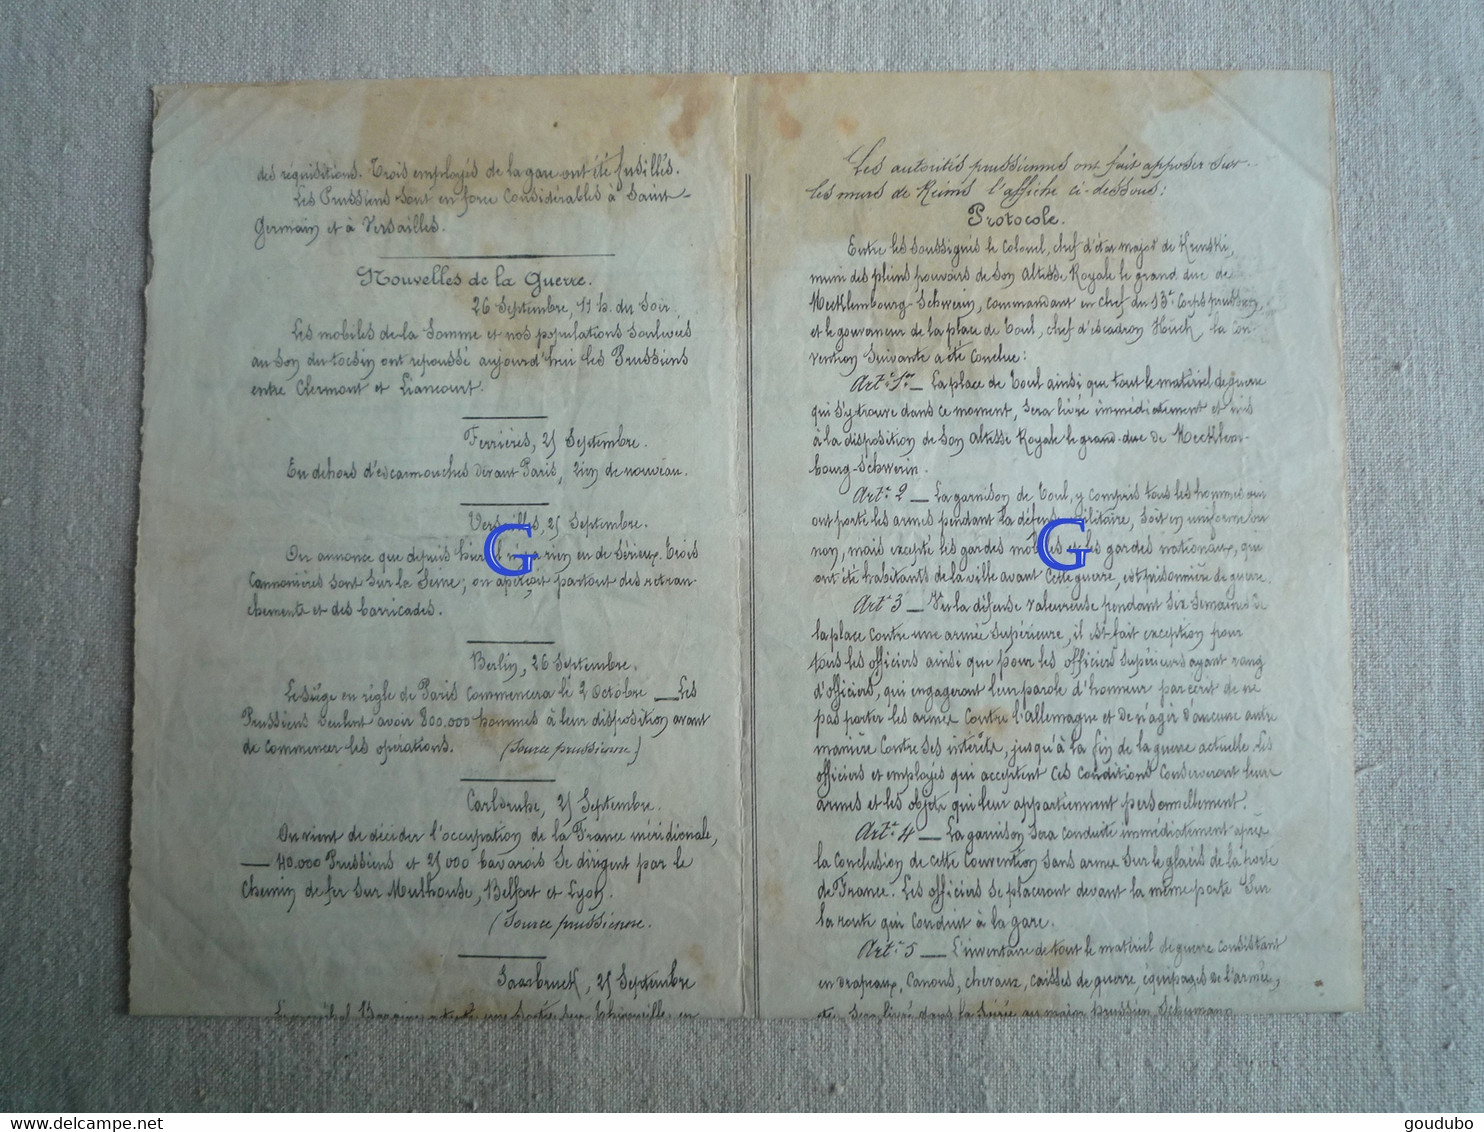 des réquisitions. Trois employés de la gare ont été fusillés.
Les Prussiens sont en force considérables à Saint-
Germain et à Versailles.
Nouvelles de la Guerre.
26 Septembre, 11 h. du Soir.
Les mobiles de la Somme et nos populations soulevées
au son du tocsin ont repoussé aujourd'hui les Prussiens
entre Clermont et Liancourt.
Ferrières, 25 Septembre.
En dehors d'escarmouches devant Paris, rien de nouveau.
Versailles, 25 Septembre.
On annonce que depuis hier il n'y a rien eu de sérieux. Trois
cannonières sont sur la Seine; on aperçoit partout des retran-
chements et des barricades.
Berlin, 26 Septembre.
Le siège en règle de Paris commencera le 2 octobre — Les
Prussiens veulent avoir 800.000 hommes à leur disposition avant
de commencer les opérations. (Source prussienne)
Carlsruhe, 25 Septembre.
On vient de décider l'occupation de la France méridionale,
— 40.000 Prussiens et 25000 bavarois se dirigent par le
chemin de fer sur Mulhouse, Belfort et Lyon.
(Source prussienne.
Saarbruck, 25 Septembre
Les autorités prussiennes ont fait apposer sur
les murs de Reims l'affiche ci-dessous:
Protocole.
Entre les soussignés le colonel, chef d'état major de Krenski,
muni des pleins pouvoirs de son Altesse Royale le grand duc de
Mecklembourg-Schwerin, commandant en chef du 13e Corps prussien,
et le gouverneur de la place de Toul, chef d'escadron Huick, la con-
vention suivante a été conclue:
Art. 1er — La place de Toul ainsi que tout le matériel de guerre
qui s'y trouve dans ce moment, sera livré immédiatement et mis
à la disposition de son Altesse Royale le grand-duc de Mecklem-
bourg-Schwerin.
Art. 2 — La garnison de Toul, y compris tous les hommes qui
ont porté les armes pendant la défense militaire, soit en uniforme ou
non, mais excepté les gardes mobiles et les gardes nationaux, qui
ont été habitants de la ville avant cette guerre, est prisonnière de guerre.
Art. 3 — Vu la défense valeureuse pendant six semaines de
la place contre une armée supérieure, il est fait exception pour
tous les officiers ainsi que pour les officiers supérieurs ayant rang
d'officiers, qui engageront leur parole d'honneur par écrit de ne
pas porter les armes contre l'Allemagne et de n'agir d'aucune autre
manière contre ses intérêts, jusqu'à la fin de la guerre actuelle. Les
officiers et employés qui acceptent ces conditions conserveront leurs
armes et les objets qui leur appartiennent personnellement.
Art. 4 — La garnison sera conduite immédiatement après
la conclusion de cette convention sans armes sur le glacis de la porte
de France. Les officiers se placeront devant la même porte sur
la route qui conduit à la gare.
Art. 5 — L'inventaire de tout le matériel de guerre consistant
en drapeaux, canons, chevaux, caisses de guerre, équipages de l'armée,
etc, sera livré dans la soirée au major prussien Schumann
G
G
delcampe.net
goudubo